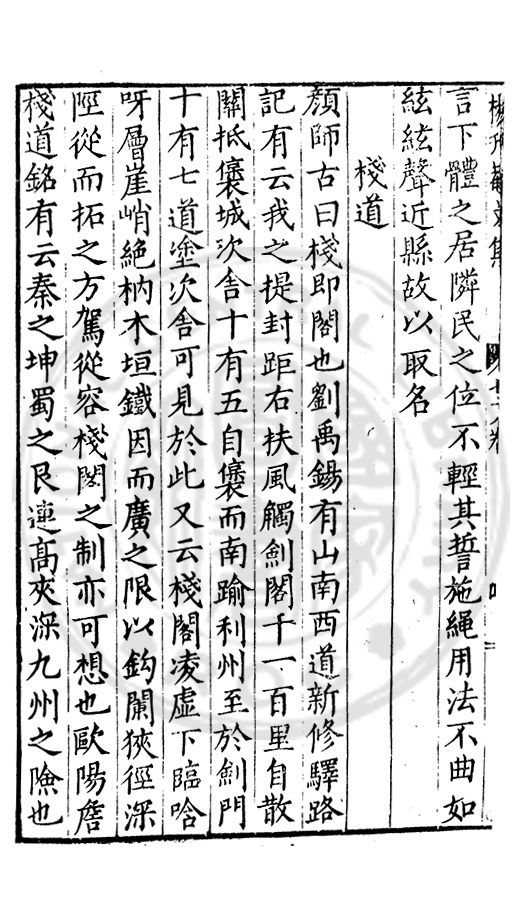 言下體之居隣民之位不輕其誓施繩用法不曲如
絃絃聲近縣故以取名
棧道
顔師古曰棧即閣也劉禹錫有山南西道新修驛路
記有云我之提封距右扶風觸劍閣千一百里自散
關抵褒城次舍十有五自褒而南踰利州至於劍門
十有七道塗次舍可見於此又云棧閣凌虛下臨唅
呀層崖峭絶枘木垣鐵因而廣之限以鈎闌狹徑深
陘從而拓之方駕從容棧閣之制亦可想也歐陽詹
棧道銘有云秦之坤蜀之艮連髙夾深九州之險也